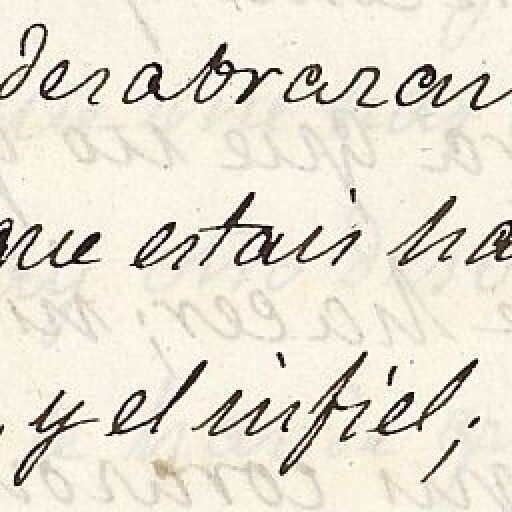 desabrazan
que estais ha
, y el infiel;